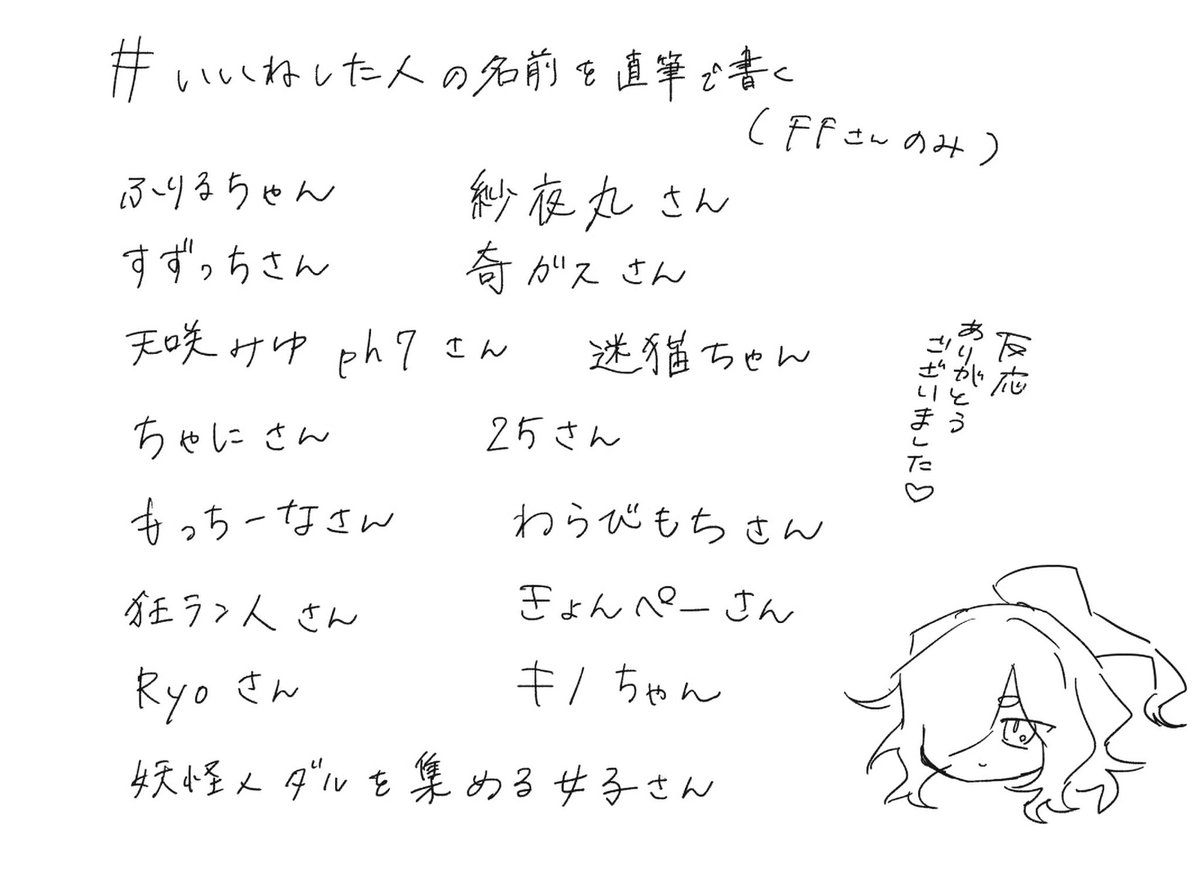 #いいねした人の名前を直筆で書く
(FFさんのみ)
ふりるちゃん 紗夜丸さん
すずっちさん 奇ガスさん
天咲みゆ ph7さん 迷猫ちゃん
ちゃにさん 25さん
もっちーなさん わらびもちさん
狂ラン人さん きょんぺーさん
Ryoさん キノちゃん
妖怪メダルを集める女子さん
反応
ありがとう
ございました♡